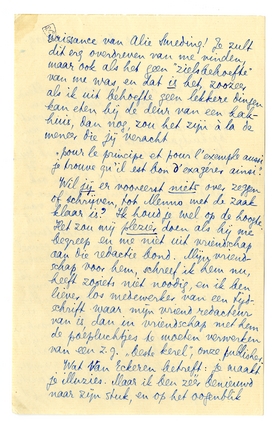 naissance van Alie Smeding! Je zult
dit erg overdreven van me vinden,
maar ook als het geen "zielsbehoefte"
van me was en dat is het, zoozeer
als ik uit behoefte geen lekkere dingen
kan eten bij de deur van een kak-
huis, dan nog zou het zijn à la de
menees die jij veracht
"pour le principe et pour l'exemple aussi,
je trouve qu'il est bon d'exagérer ainsi."
Wil jij er vooreerst niets over zeggen
of schrijven, tot Menno met de zaak
klaar is? Ik houd je wel op de hoogte.
Het zou mij plezier doen als hij me
begreep en me niet uit vriendschap
aan die redactie bond. Mijn vriend-
schap voor hem, schreef ik hem nu,
heeft zoiets niet noodig, en ik ben
liever los medewerker van een tijd-
schrift waar mijn vriend redacteur
van is dan in vriendschap met hem
de poepluchtjes te moeten verwerken
van een z.g. "beste kerel", onze publisher.
Wat Van Eckeren betreft: je maakt
je illuzies. Maar ik ben zéér benieuwd
naar zijn stuk, en op het oogenblik